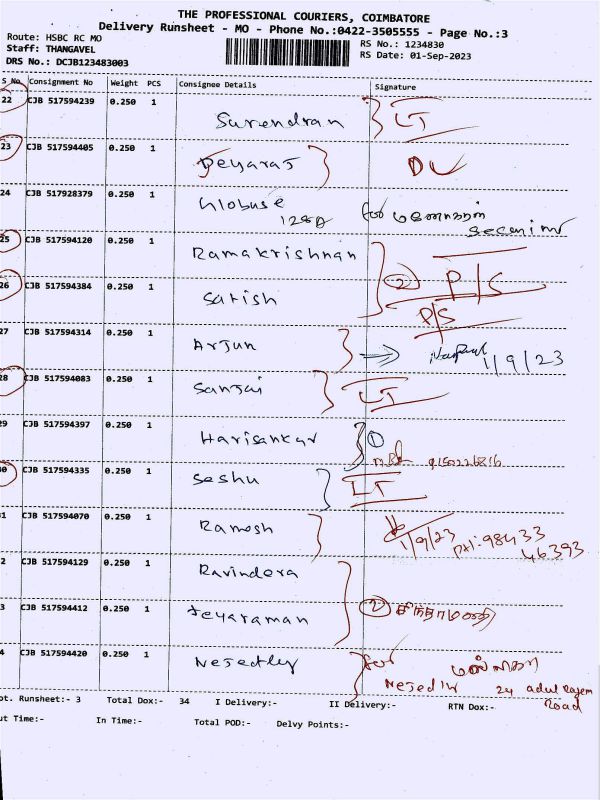 THE PROFESSIONAL COURIERS, COIMBATORE
Delivery Runsheet - MO - Phone No.:0422-3505555 - Page No.:3
Route: HSBC RC MO
RS No.: 1234830
Staff: THANGAVEL
RS Date: 01-Sep-2023
DRS No.: DCJB123483003
S No. Consignment No Weight PCS Consignee Details Signature
22 CJB 517594239 0.250 1 Surendran LT
23 CJB 517594405 0.250 1 Jeyaraj DL
24 CJB 517928379 0.250 1 Globuse
128A
25 CJB 517594120 0.250 1 Ramakrishnan
26 CJB 517594384 0.250 1 Satish 2 P/S
P/S
27 CJB 517594314 0.250 1 Arjun 1/9/23
28 CJB 517594083 0.250 1 Sanjai LT
29 CJB 517594397 0.250 1 Harisankar 1
30 CJB 517594335 0.250 1 Seshu LT
1 CJB 517594070 0.250 1 Ramesh 1/9/23 PH:98433
46393
2 CJB 517594129 0.250 1 Ravindera
3 CJB 517594412 0.250 1 Jeyaraman 2
4 CJB 517594420 0.250 1 Nesedly for
24 Road
ot. Runsheet:- 3 Total Dox:- 34 I Delivery:- II Delivery:- RTN Dox:-
ut Time:- In Time:- Total POD:- Delvy Points:-